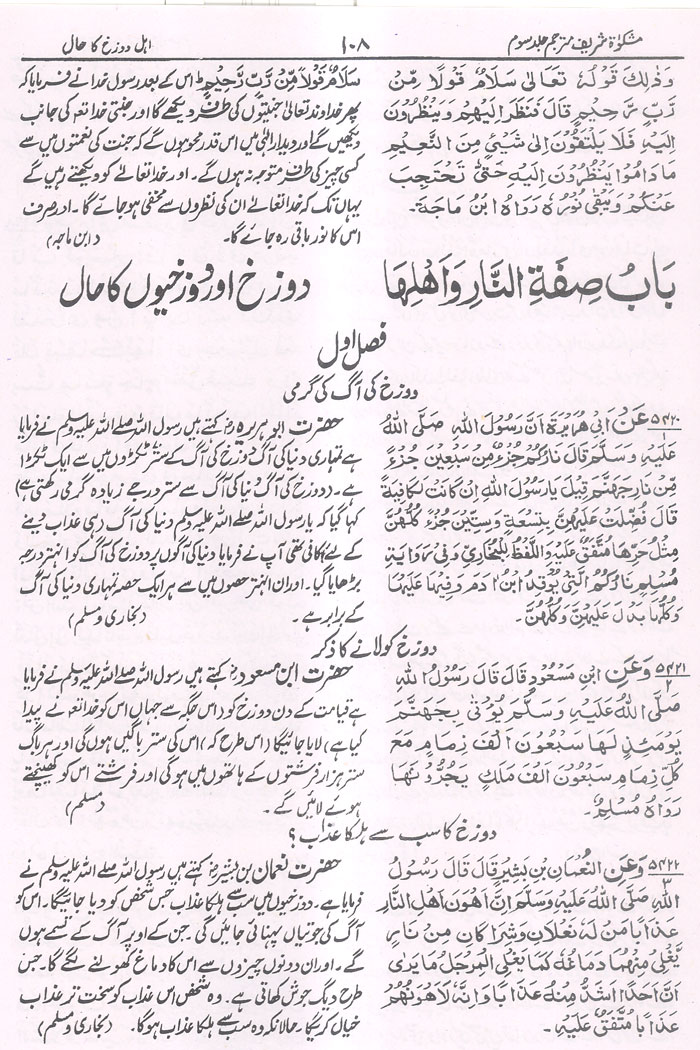 مشکوٰۃ شریف مترجم جلد سوم
۱۰۸
اہل دوزخ کا حال
وَذٰلِكَ قَوْلُهٗ تَعَالٰى سَلَامٌ قَوْلًا مِّنْ
رَبٍّ رَّحِيْمٍ قَالَ فَنَظَرَ اِلَيْهِمْ وَيَنْظُرُوْنَ
اِلَيْهِ فَلَا يَلْتَفِتُوْنَ اِلٰى شَيْئٍ مِنَ النَّعِيْمِ
مَا دَامُوْا يَنْظُرُوْنَ اِلَيْهِ حَتّٰى يَحْتَجِبَ
عَنْهُمْ وَيَبْقٰى نُوْرُهٗ رَوَاهُ ابْنُ مَاجَةَ۔
سَلَامٌ قَوْلًا مِّنْ رَبٍّ رَّحِيْمٍ اس کے بعد رسول خدا نے فرمایا کہ
پھر خداوند تعالیٰ جنتیوں کی طرف دیکھے گا اور جنتی خدا تعالے کی جانب
دیکھیں گے اور دیدار الٰہی میں اس قدر محو ہوں گے کہ جنت کی نعمتوں میں سے
کسی چیز کی طرف متوجہ نہ ہوں گے۔ اور خدا تعالے کو دیکھتے رہیں گے
یہاں تک کہ خدا تعالے ان کی نظروں سے مخفی ہو جائے گا۔ اور صرف
اس کا نور باقی رہ جائے گا۔ (ابن ماجہ)
بَابُ صِفَةِ النَّارِ وَاَهْلِهَا
دوزخ اور دوزخیوں کا حال
فصل اول
دوزخ کی آگ کی گرمی
۵۴۲۰ عَنْ اَبِىْ هُرَيْرَةَ اَنَّ رَسُوْلَ اللهِ صَلَّى اللهُ
عَلَيْهِ وَسَلَّمَ قَالَ نَارُكُمْ جُزْءٌ مِنْ سَبْعِيْنَ جُزْءً
مِّنْ نَارِ جَهَنَّمَ قِيْلَ يَا رَسُوْلَ اللهِ اِنْ كَانَتْ لَكَافِيَةً
قَالَ فُضِّلَتْ عَلَيْهِنَّ بِتِسْعَةٍ وَسِتِّيْنَ جُزْءً كُلُّهُنَّ
مِثْلُ حَرِّهَا مُتَّفَقٌ عَلَيْهِ وَاللَّفْظُ لِلْبُخَارِىِّ وَفِىْ رِوَايَةِ
مُسْلِمٍ نَارُكُمُ الَّتِىْ يُوْقِدُ ابْنُ اٰدَمَ وَفِيْهَا عَلَيْهَا
وَكُلُّهَا بَدَلَ عَلَيْهِنَّ وَكُلُّهُنَّ۔
حضرت ابو ہریرہ رض کہتے ہیں رسول اللہ صلے اللہ علیہ وسلم نے فرمایا
ہے تمہاری دنیا کی آگ دوزخ کی آگ کے ستر ٹکڑوں میں سے ایک ٹکڑا
ہے۔ (دوزخ کی آگ دنیا کی آگ سے ستر درجے زیادہ گرمی رکھتی ہے)
کہا گیا کہ یا رسول اللہ صلے اللہ علیہ وسلم دنیا کی آگ (ہی) عذاب دینے
کے لئے کافی تھی آپ نے فرمایا دنیا کی آگوں پر دوزخ کی آگ کو انہتر درجہ
بڑھایا گیا۔ اور ان انہتر حصوں میں سے ہر ایک حصہ تمہاری دنیا کی آگ
کے برابر ہے۔ (بخاری و مسلم)
دوزخ کو لانے کا ذکر
۵۴۲۱ ۲ وَعَنِ ابْنِ مَسْعُوْدٍ قَالَ قَالَ رَسُوْلُ اللهِ
صَلَّى اللهُ عَلَيْهِ وَسَلَّمَ يُؤْتٰى بِجَهَنَّمَ
يَوْمَئِذٍ لَهَا سَبْعُوْنَ اَلْفَ زِمَامٍ مَعَ
كُلِّ زِمَامٍ سَبْعُوْنَ اَلْفَ مَلَكٍ يَجُرُّوْنَهَا
رَوَاهُ مُسْلِمٌ۔
حضرت ابن مسعود رض کہتے ہیں رسول اللہ صلے اللہ علیہ وسلم نے فرمایا
ہے قیامت کے دن دوزخ کو (اس جگہ سے جہاں اس کو خدا تعالے نے پیدا
کیا ہے) لایا جائیگا (اس طرح کہ) اس کی ستر باگیں ہوں گی اور ہر باگ
ستر ہزار فرشتوں کے ہاتھوں میں ہوگی اور فرشتے اس کو کھینچتے
ہوئے لائیں گے۔ (مسلم)
دوزخ کا سب سے ہلکا عذاب؟
۵۴۲۲ ۳ وَعَنِ النُّعْمَانِ بْنِ بَشِيْرٍ قَالَ قَالَ رَسُوْلُ
اللهِ صَلَّى اللهُ عَلَيْهِ وَسَلَّمَ اِنَّ اَهْوَنَ اَهْلِ النَّارِ
عَذَابًا مَنْ لَهٗ نَعْلَانِ وَشِرَاكَانِ مِنْ نَارٍ
يَّغْلِىْ مِنْهُمَا دِمَاغُهٗ كَمَا يَغْلِى الْمِرْجَلُ مَا يَرٰى
اَنَّ اَحَدًا اَشَدُّ مِنْهُ عَذَابًا وَاِنَّهٗ لَاَهْوَنُهُمْ
عَذَابًا مُتَّفَقٌ عَلَيْهِ۔
حضرت نعمان بن بشیر رض کہتے ہیں رسول اللہ صلے اللہ علیہ وسلم نے
فرمایا ہے۔ دوزخیوں میں سب سے ہلکا عذاب جس شخص کو دیا جائیگا۔ اس کو
آگ کی جوتیاں پہنائی جائیں گی۔ جن کے اوپر آگ کے تسمے ہوں
گے۔ اور ان دونوں چیزوں سے اس کا دماغ کھولنے لگے گا۔ جس
طرح دیگ جوش کھاتی ہے۔ وہ شخص اس عذاب کو سخت تر عذاب
خیال کریگا۔ حالانکہ وہ سب سے ہلکا عذاب ہوگا۔ (بخاری و مسلم)